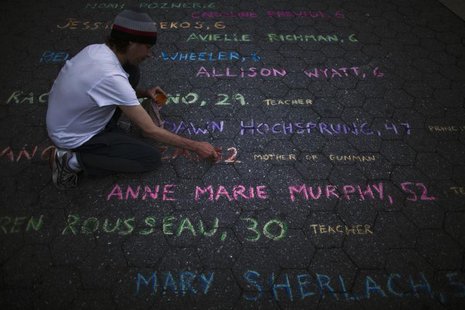 NOAH POZNER, 6
CAROLINE PREVIDI, 6
JESSICA REKOS, 6
AVIELLE RICHMAN, 6
WHEELER, 6
ALLISON WYATT, 6
RAC NO, 29 TEACHER
DAWN HOCHSPRUNG, 47 PRINC
2 MOTHER OF GUNMAN
ANNE MARIE MURPHY, 52 TEA
REN ROUSSEAU, 30 TEACHER
MARY SHERLACH, 5